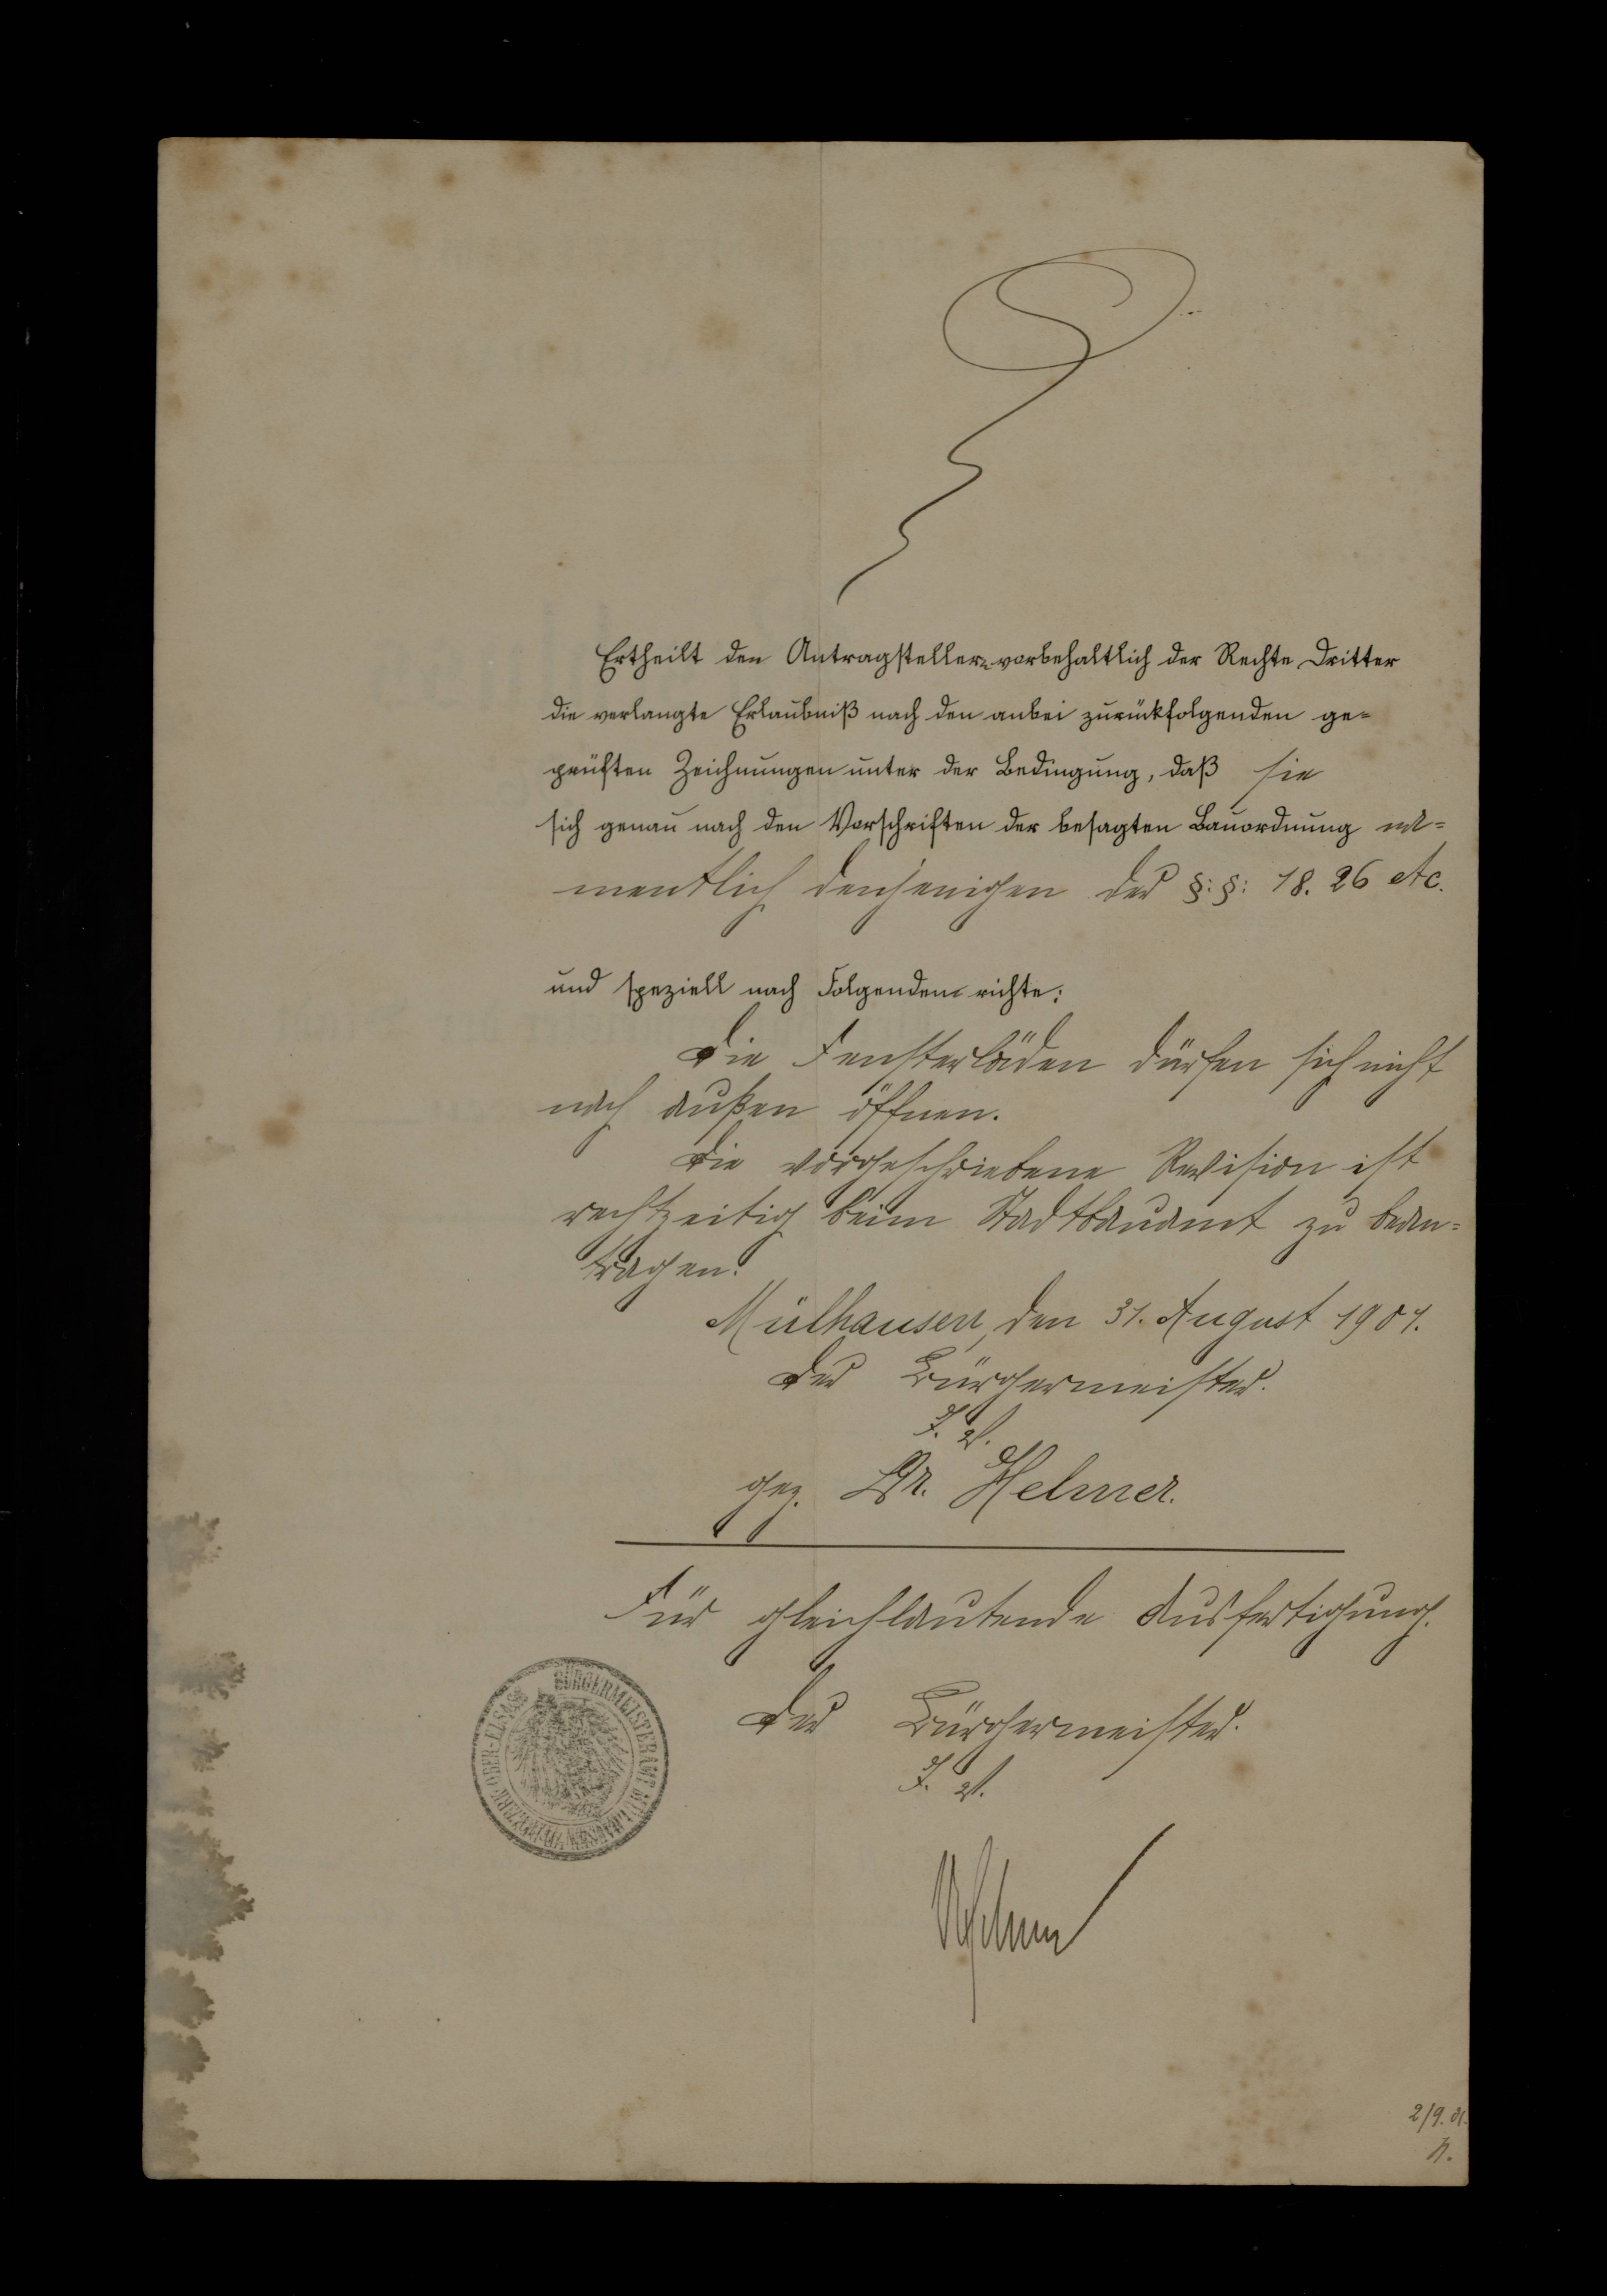 Ertheilt den Antragstellern vorbehaltlich der Rechte Dritter
die verlangte Erlaubniß nach den anbei zurückfolgenden ge=
prüften Zeichnungen unter der Bedingung, daß sie
sich genau nach den Vorschriften der besagten Bauordnung na=
mentlich denjenigen der §:§: 18. 26 etc.
und speziell nach Folgendem richte:
Die Fensterläden dürfen sich nicht
nach außen öffnen.
Die vorgeschriebene Revision ist
rechtzeitig beim Stadtbauamt zu bean=
tragen.
Mülhausen, den 31. August 1901.
Der Bürgermeister.
I. V.
gez. Dr. Helmer.
Für gleichlautende Ausfertigung.
Der Bürgermeister.
I. V.
BÜRGERMEISTERAMT MÜLHAUSEN BEZIRK OBER-ELSASS
2/9. 01.